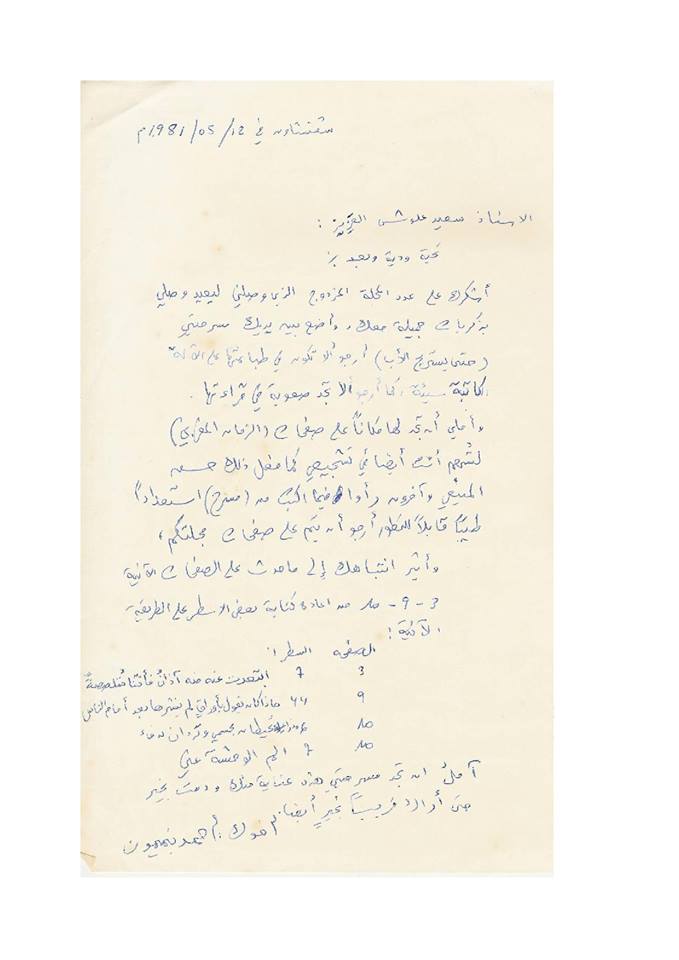 شفشاون في 12/05/1981م
الاستاذ سعيد علوش العزيز :
تحية ودية وبعد :
أشكرك على عدد المجلة المزدوج الذي وصلني ليعيد وصلي
بذكريات جميلة معك، وأضع بين يديك مسرحيتي
(حتى يستريح الأب) أرجو ألا تكون في طباعتها على الآلة
الكاتبة سيئة، كما أرجو ألا تجد صعوبة في قراءتها.
وأملي أن تجد لها مكاناً على صفحات (الزمان المغربي)
لتسهم أنت أيضا في تشجيعي كما فعل ذلك حسن
المنيعي وآخرون رأوا فيما أكتب من (مسرح) استعداداً
طيباً قابلاً للتطور أرجو أن يتم على صفحات مجلتكم،
وأثير انتباهك إلى ما حدث على الصفحات الآتية
3 - 9 - 10 من اعادة كتابة بعض الاسطر على الطريقة
الآتية :
الصفحة السطر :
3 7 ابتعدت عنه آذان
9 ماذا كان يقول بأوراق لم ينشرها بعد أمام الناس
10 بجسمي
10 7 الى
آمل ان تجد مسرحيتي هذه عناية منك ودمت بخير
حتى أراك قريباً بخير أيضا.
أخوك : أحمد بنميمون